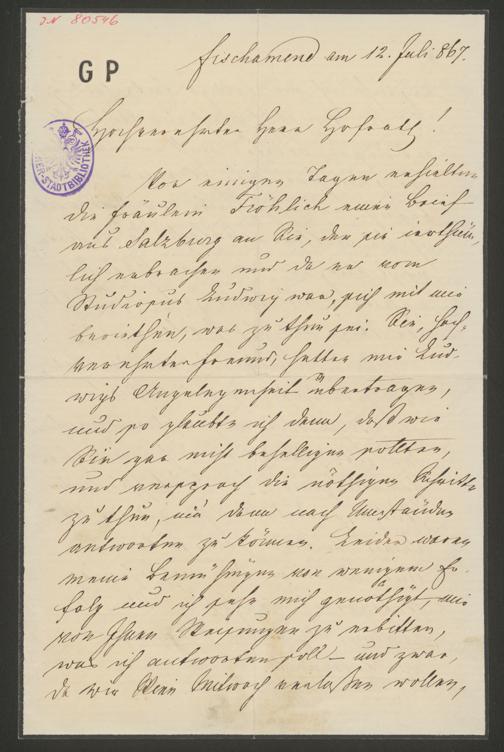 JN 80546
G P
Fischamend am 12. Juli 867.
WIENER-STADTBIBLIOTHEK
Hochverehrter Herr Hofrath!
Vor einigen Tagen erhielten
die Fräulein Fröhlich einen Brief
aus Salzburg an Sie, den sie irrthüm,
lich erbrachen und da er vom
Studiosus Ludwig war, sich mit mir
beriethen, was zu thun sei. Sie, hoch,
verehrter Freund, hatten mir Lud-
wigs Angelegenheit übertragen,
und so glaubte ich denn, daß wir
Sie gar nicht behelligen sollten,
und versprach die nöthigen Schritte
zu thun, um dann nach Umständen
antworten zu können. Leider waren
meine Bemühungen von wenigem Er-
folg und ich sehe mich genöthigt, mir
von Ihnen Weisungen zu erbitten,
was ich antworten soll – und zwar,
da wir Wien Mitwoch verlassen wollen,